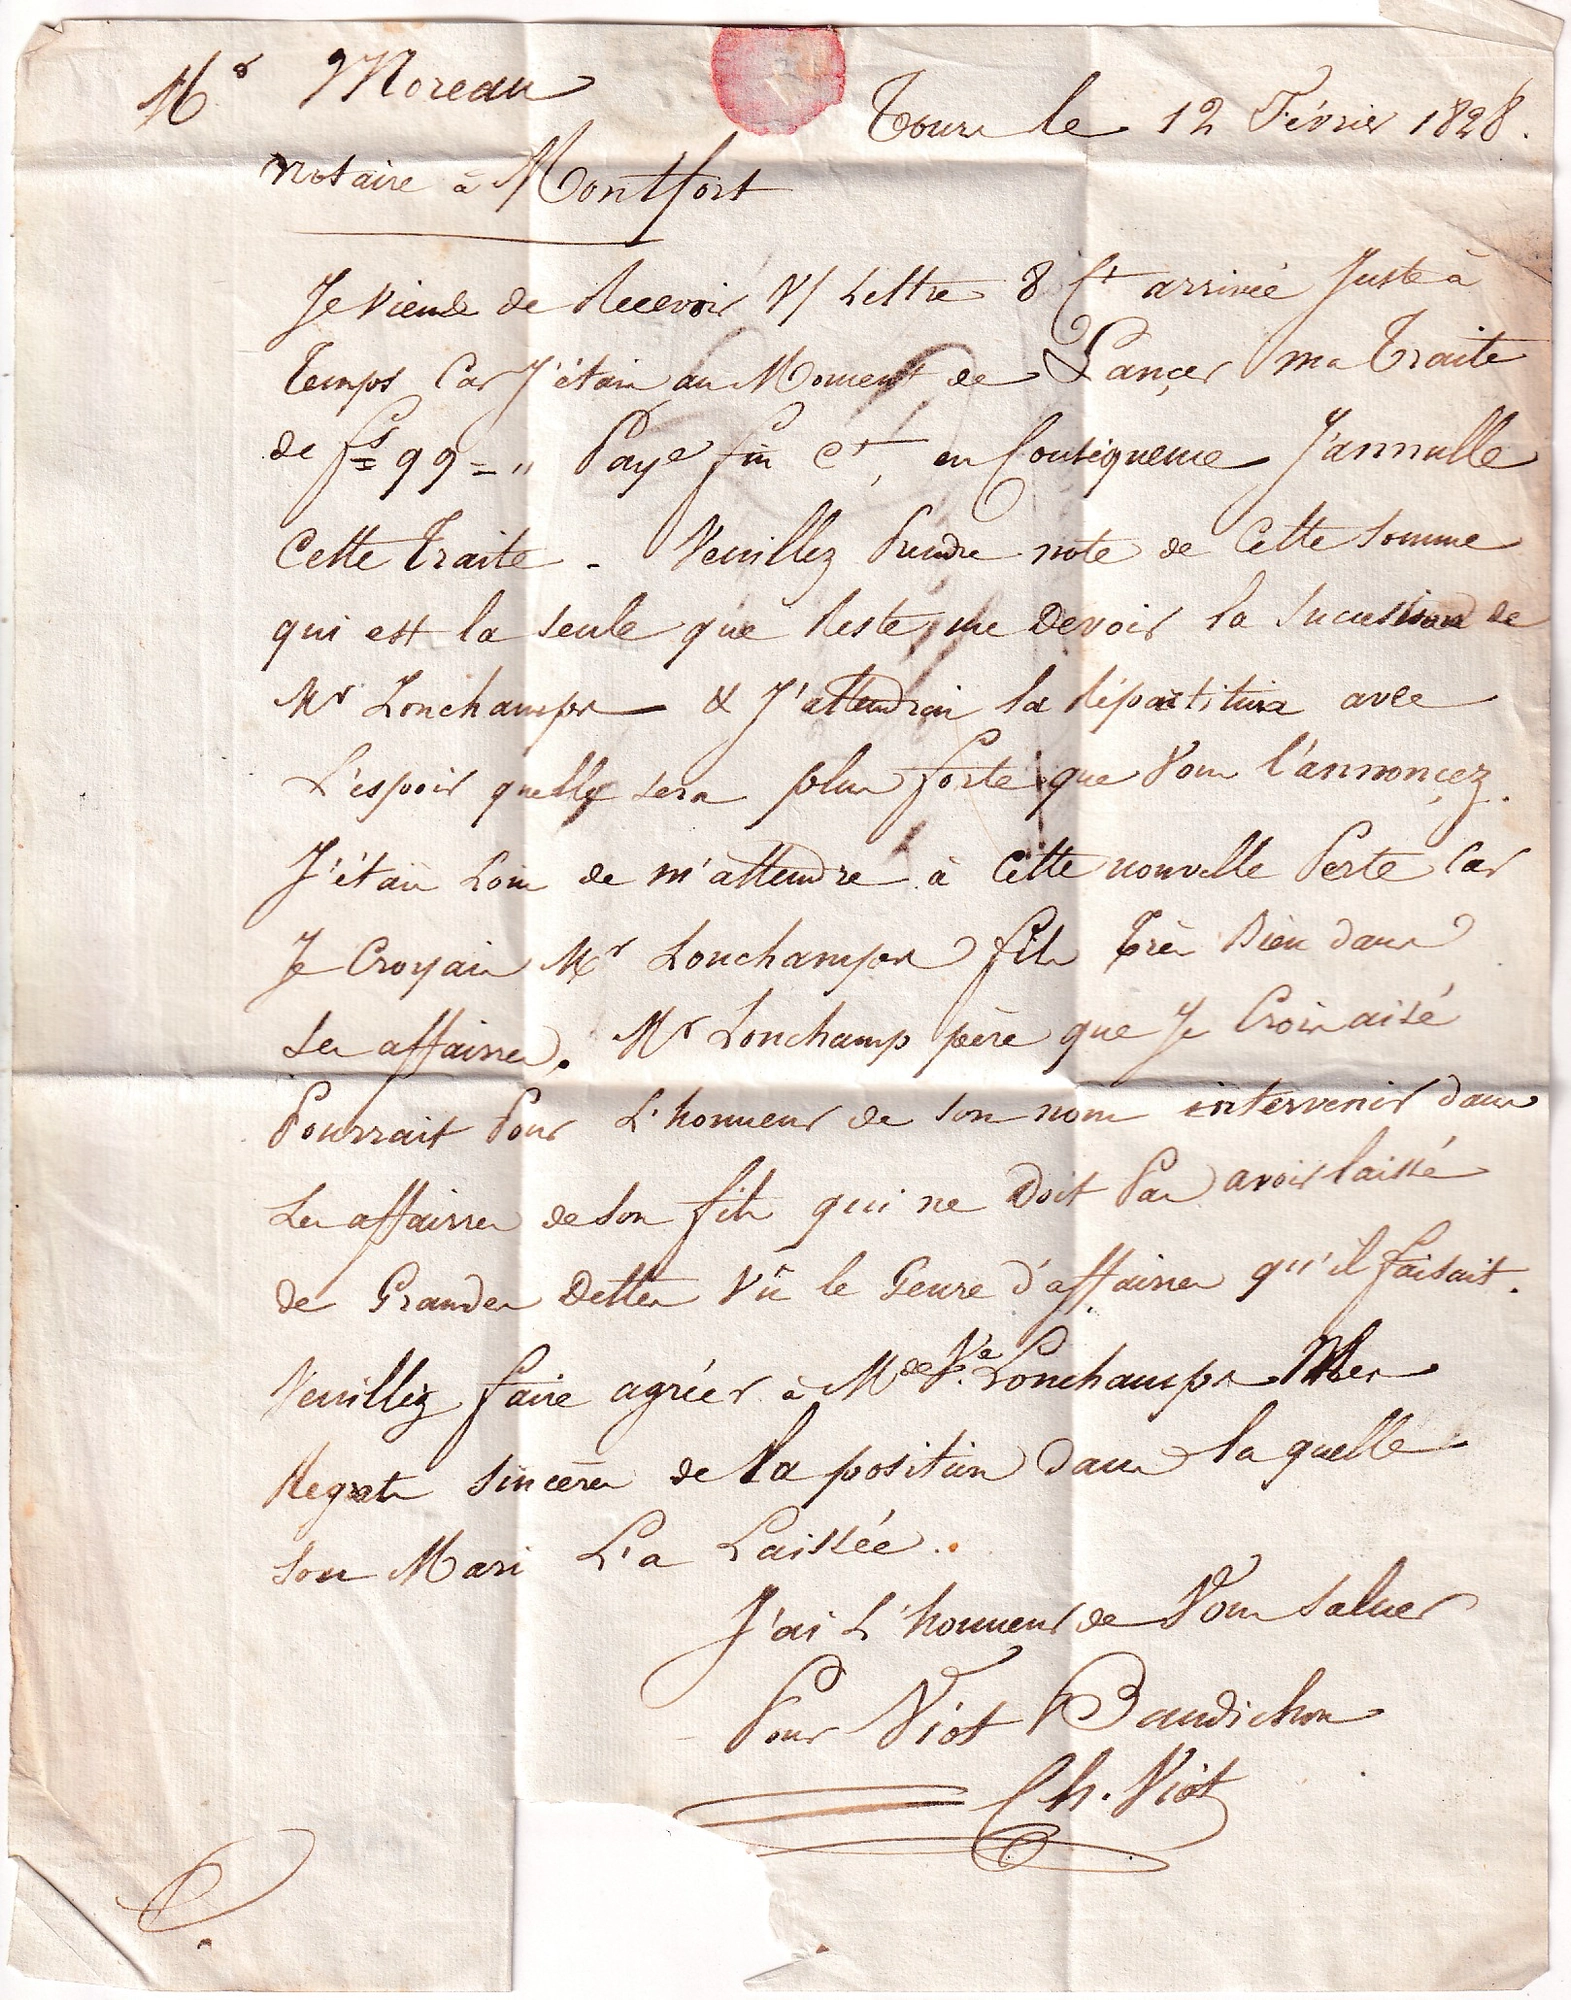 Mr Moreau
Tours le 12 Février 1828.
notaire à Montfort
Je Viens de Recevoir V/ Lettre 8 Ct arrivée Juste à
Temps Car J'étais au Moment de Lançer ma Traite
de fs 99 = " Paye fin Ct, en Conséquence J'annulle
Cette Traite - Veuillez Prendre note de Cette Somme
qui est la seule que Reste me Devoir la Succession de
Mr Lonchamps & J'attendrai la Répartition avec
L'espoir quelle sera plus forte que Vous l'annonçez.
J'étais Loin de m'attendre à Cette nouvelle Perte Car
Je Croyais Mr Lonchamps fils Très Bien dans
ses affaires. Mr Lonchamp père que Je Crois aisé
Pourrait Pour L'honneur de son nom intervenir dans
Les affaires de son fils qui ne Doit Pas avoir laissé
de Grandes Dettes Vû le Genre d'affaires qu'il faisait.
Veuillez faire agréer à Mde Ve Lonchamps Mes
Regrets sincères de la position dans la quelle
son Mari L'a Laissée..
J'ai L'honneur de Vous saluer
Pour Viot Baudichon
Ch. Viot